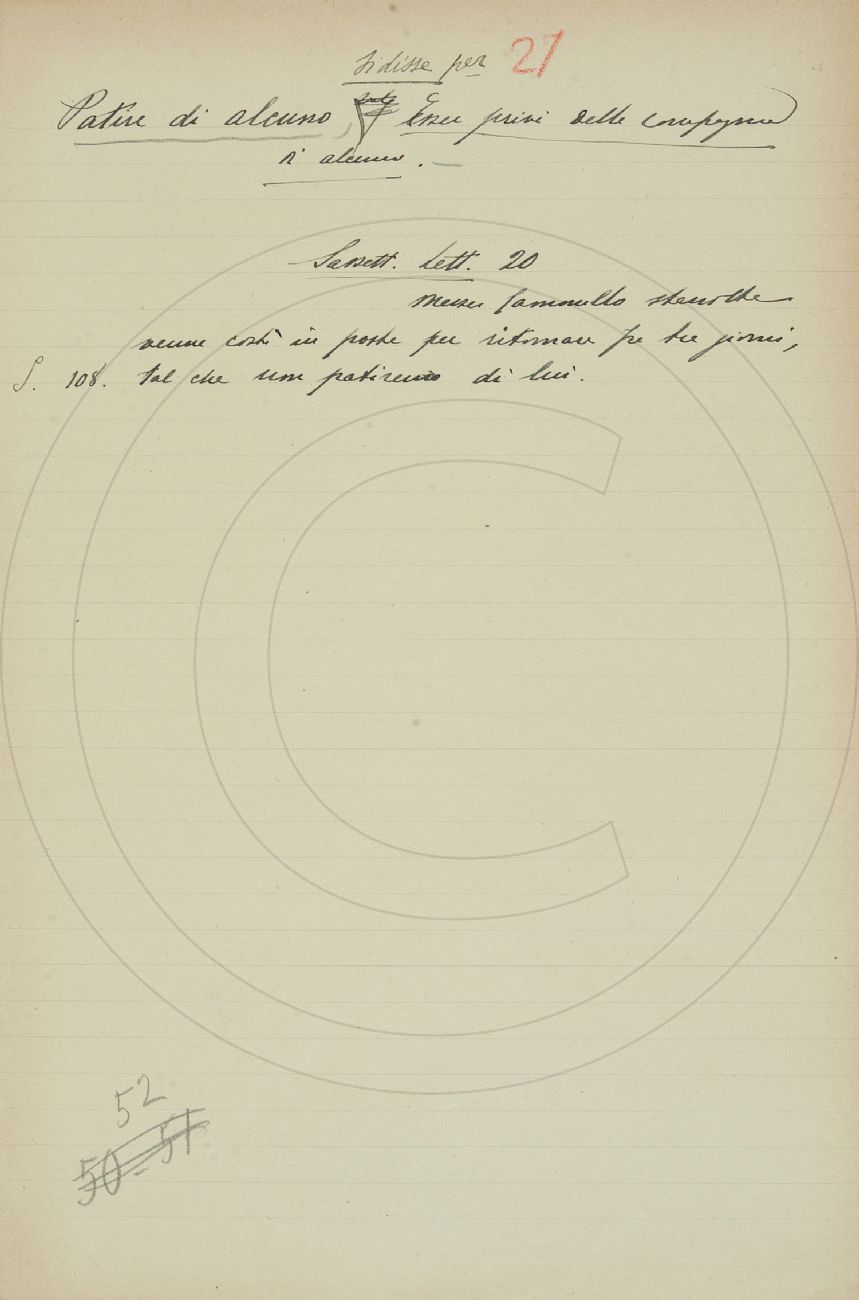 si disse per 27
Patire di alcuno Esser privi della compagnia
d' alcuno.
Sassett. Lett. 20
Messer Cammillo stanotte
venne costì in poste per ritornare fra tre giorni,
S. 108. tal che non patiremo di lui.
52
50-51